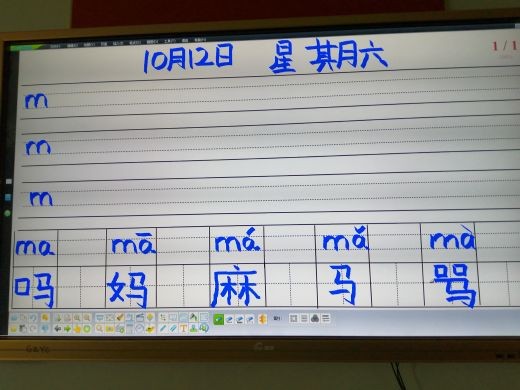 10月12日 星期六
1 / 1
m
m
m
ma mā má mǎ mà
吗 妈 麻 马 骂